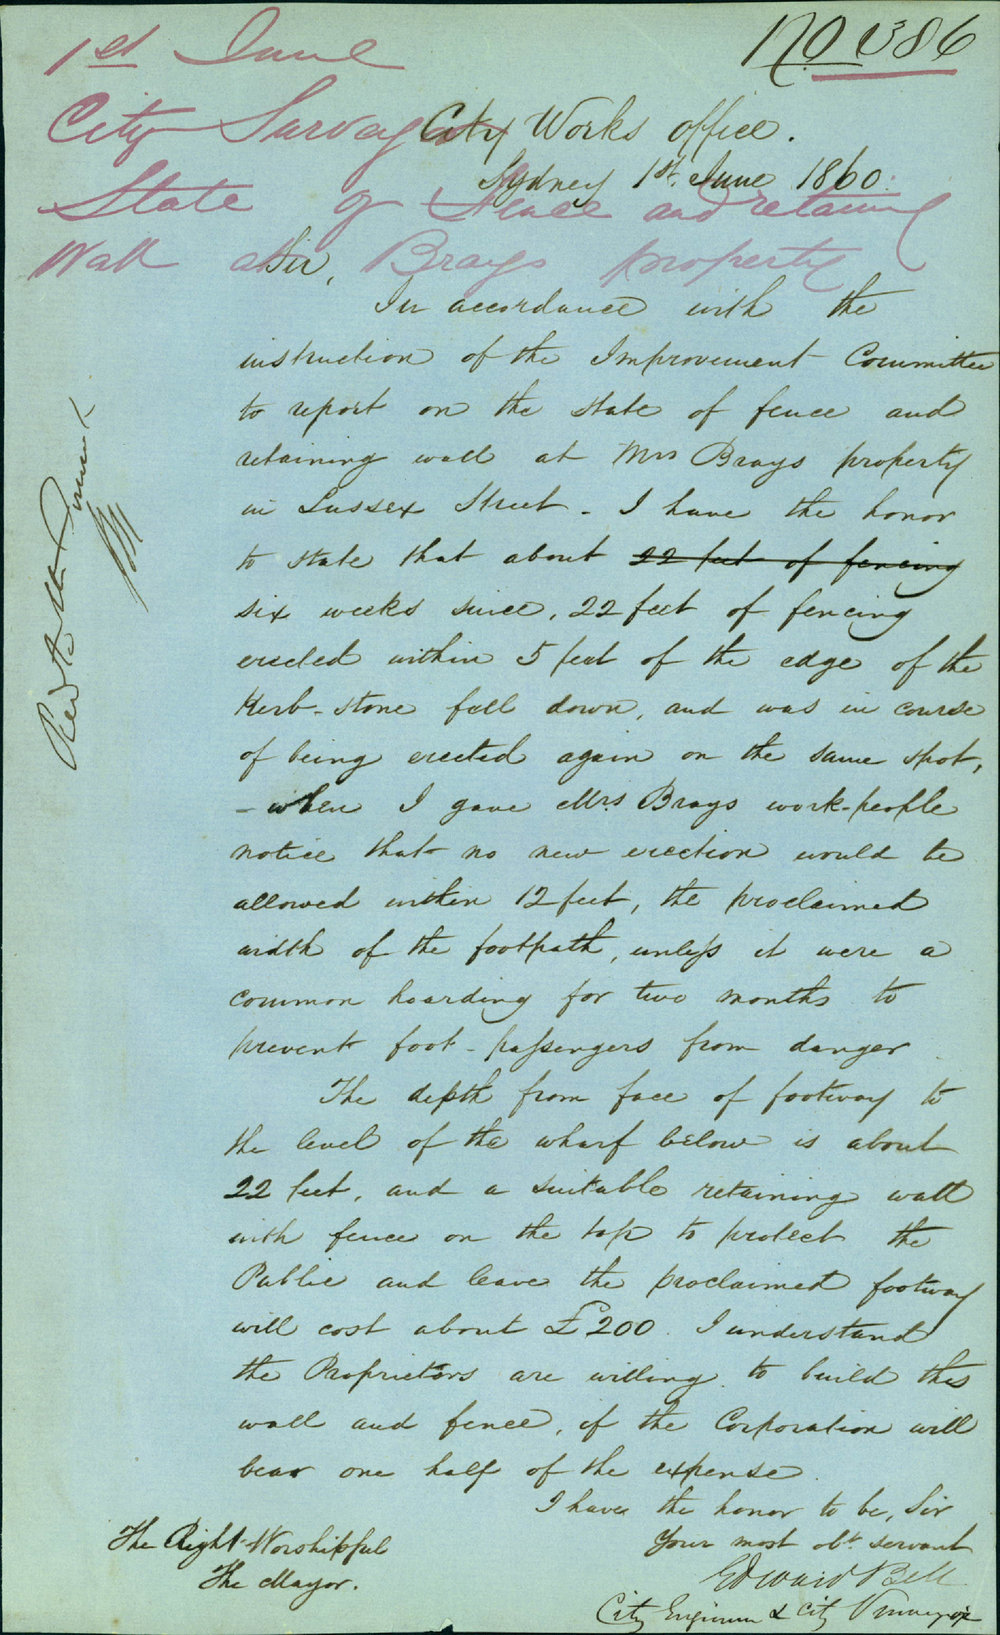 No 386
1st June
City Surveyor
State of Fence and retaining
Wall at Brays property
City Works office.
Sydney 1st. June 1860.
Sir,
In accordance with the
instruction of the Improvement Committee
to report on the state of fence and
retaining wall at Mrs Brays property
in Sussex Street - I have the honor
to state that about 22 feet of fencing
six weeks since, 22 feet of fencing
erected within 5 feet of the edge of the
Kerb-stone fell down, and was in course
of being erected again on the same spot,
- when I gave Mrs Brays work-people
notice that no new erection would be
allowed within 12 feet, the proclaimed
width of the footpath, unless it were a
common hoarding for two months to
prevent foot-passengers from danger
The depth from face of footway to
the level of the wharf below is about
22 feet, and a suitable retaining wall
with fence on the top to protect the
Public and leave the proclaimed footway
will cost about £200. I understand
the Proprietors are willing to build this
wall and fence, if the Corporation will
bear one half of the expense.
I have the honor to be, Sir
Your most obt. servant
Edward Bell
City Engineer & City Surveyor
The Right Worshipful
The Mayor.